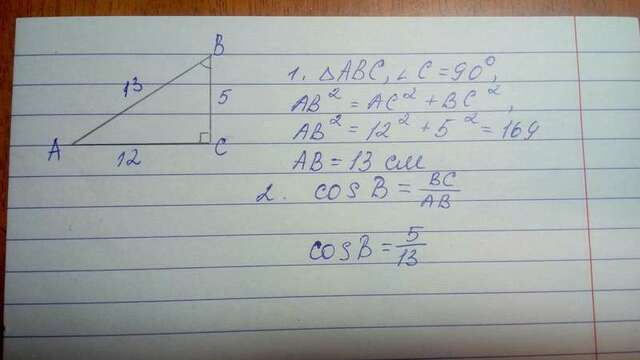 B
13
5
A
12
C
1. △ABC, ∠C=90°,
AB² = AC² + BC²,
AB² = 12² + 5² = 169
AB = 13 см
2. cos B = BC/AB
cos B = 5/13